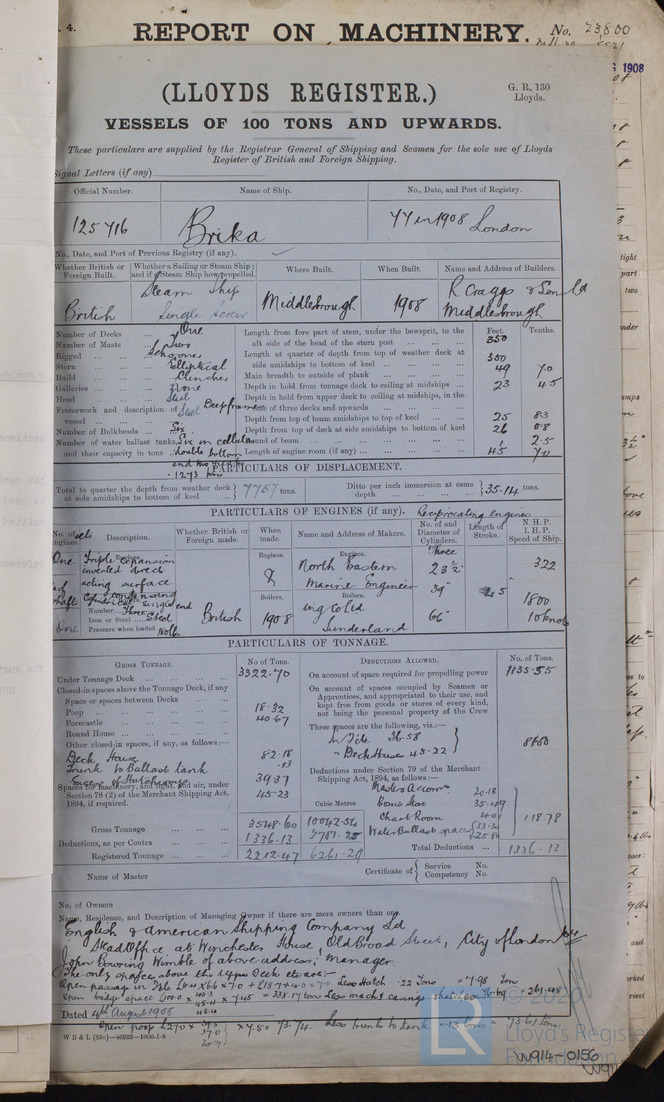 4.
REPORT ON MACHINERY. No. 23800
1908
(LLOYDS REGISTER.)
G. R. 130
Lloyds.
VESSELS OF 100 TONS AND UPWARDS.
These particulars are supplied by the Registrar General of Shipping and Seamen for the sole use of Lloyds
Register of British and Foreign Shipping.
Signal Letters (if any)
Official Number. Name of Ship. No., Date, and Port of Registry.
125716 Brika 77 in 1908 London
No., Date, and Port of Previous Registry (if any).
Whether British or Foreign Built. Whether a Sailing or Steam Ship; and if Steam Ship how propelled. Where Built. When Built. Name and Address of Builders.
British Steam Ship Single Screw Middlesbrough 1908 R Craggs & Sons Ld Middlesbrough
Number of Decks One
Number of Masts Two
Rigged Schooner
Stern Elliptical
Build Clincher
Galleries None
Head
Framework and description of vessel Steel Deep frame
Number of Bulkheads Six
Number of water ballast tanks, and their capacity in tons Six in cellular double bottom
1273 tons
Feet. Tenths.
Length from fore part of stem, under the bowsprit, to the
aft side of the head of the stern post 350
Length at quarter of depth from top of weather deck at
side amidships to bottom of keel 350
Main breadth to outside of plank 49 70
Depth in hold from tonnage deck to ceiling at midships 23 45
Depth in hold from upper deck to ceiling at midships, in the
case of three decks and upwards
Depth from top of beam amidships to top of keel 25 83
Depth from top of deck at side amidships to bottom of keel 26 08
Round of beam 1 2.5
Length of engine room (if any) 45 70
PARTICULARS OF DISPLACEMENT.
Total to quarter the depth from weather deck at side amidships to bottom of keel 7757 tons.
Ditto per inch immersion at same depth 35.14 tons.
PARTICULARS OF ENGINES (if any). Reciprocating engines
No. of sets Engines. Description. Whether British or Foreign made. When made. Name and Address of Makers. No. of and Diameter of Cylinders. Length of Stroke. N. H. P. I. H. P. Speed of Ship.
One Engines. Triple expansion inverted direct acting surface condensing
shaft Cylindrical single end
Number Three
Iron or Steel Steel
Pressure when loaded
One
British
Engines. 8
Boilers. 1908
Engines. North Eastern Marine Engineering Co Ld
Boilers. Sunderland
Three
23½"
39"
66"
45"
322
1800
10 knots
PARTICULARS OF TONNAGE.
GROSS TONNAGE. No of Tons. DEDUCTIONS ALLOWED. No. of Tons.
Under Tonnage Deck 3322.70
Closed-in spaces above the Tonnage Deck, if any
Space or spaces between Decks
Poop 18.32
Forecastle 40.67
Round House
Other closed-in spaces, if any, as follows:—
Deck House 82.18
Trunk to Ballast tank .13
Excess of Hatchways 39.37
Spaces for machinery, and light, and air, under
Section 78 (2) of the Merchant Shipping Act,
1894, if required. 45.23
Cubic Metres
Gross Tonnage 3548.60 10042.54
Deductions, as per Contra 1336.13 3781.25
Registered Tonnage 2212.47 6261.29
On account of space required for propelling power 1135.55
On account of spaces occupied by Seamen or
Apprentices, and appropriated to their use, and
kept free from goods or stores of every kind,
not being the personal property of the Crew
These spaces are the following, viz.:—
In Side 36.58
" Deck House 45.22
Deductions under Section 79 of the Merchant
Shipping Act, 1894, as follows:—
Masters Accom 20.18
Boms Store 35.49
Chart Room
Water Ballast spaces
118.78
Total Deductions 1336.13
Name of Master Certificate of Service No. Competency No.
No. of Owners
Name, Residence, and Description of Managing Owner if there are more owners than one.
English & American Shipping Company Ld
Head Office at Wynchester House, Old Broad Street, City of London
John Bowring Wimble of above address, Manager.
The only spaces above the upper Deck etc are:-
Dated 4th August 1908
Open poop
W B & L (830)—46923—1000-1-8
© 2020
Lloyd's Register
Foundation
LR
W914-0156